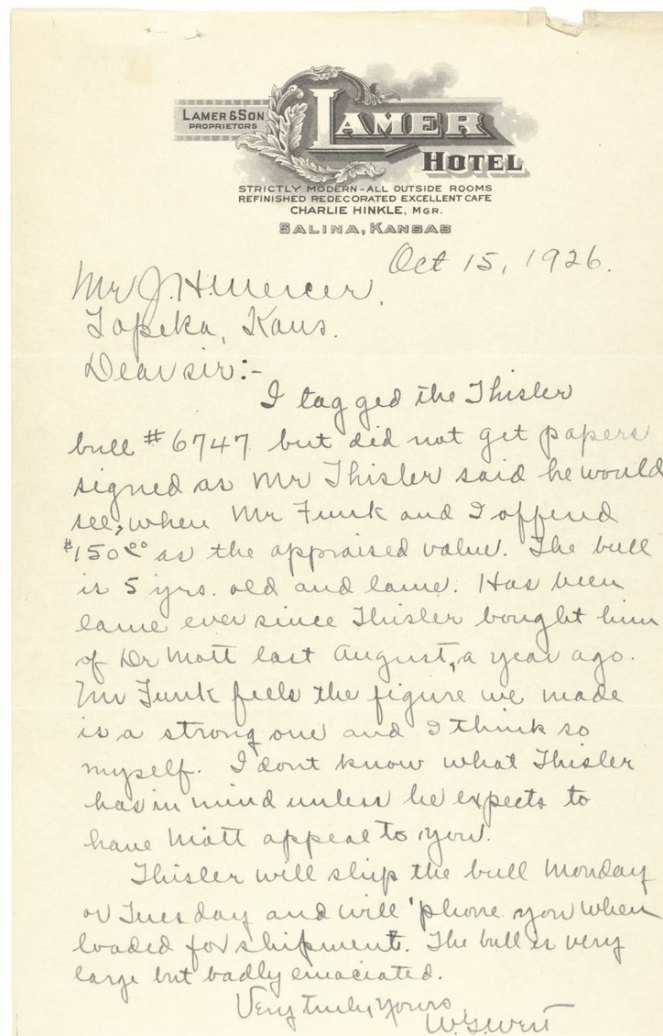 LAMER & SON
PROPRIETORS
LAMER
HOTEL
STRICTLY MODERN-ALL OUTSIDE ROOMS
REFINISHED REDECORATED EXCELLENT CAFE
CHARLIE HINKLE, MGR.
SALINA, KANSAS
Oct 15, 1926.
Mr J. H. Mercer,
Topeka, Kans.
Dear sir:-
I tagged the Thisler
bull #6747 but did not get papers
signed as Mr Thisler said he would
see, when Mr Funk and I offered
$150.00 as the appraised value. The bull
is 5 yrs. old and lame. Has been
lame ever since Thisler bought him
of Dr Mott last August, a year ago.
Mr Funk feels the figure we made
is a strong one and I think so
myself. I dont know what Thisler
has in mind unless he expects to
have Mott appeal to you.
Thisler will ship the bull Monday
or Tuesday and will 'phone you when
loaded for shipment. The bull is very
large but badly emaciated.
Very truly yours,